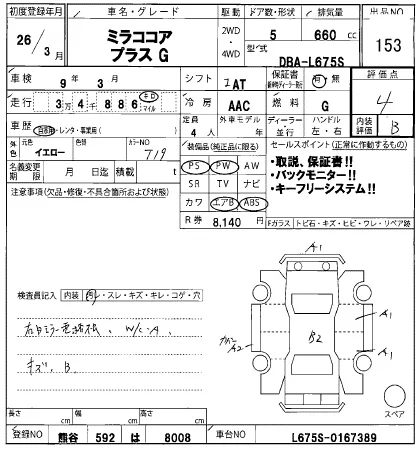 初度登録年月 車名・グレード 駆動 ドア数・形状 排気量 出品NO
26/3月 ミラココア プラス G 2WD・4WD 5 660 cc 153
型式 DBA-L675S
車検 9年3月 シフト IAT 保証書 有・無 評価点 4
走行 34886 キロ マイル 冷房 AAC 燃料 G 内装評価 B
車歴 自家用・レンタ・事業用( ) 定員 4人 外車モデル 年 ディーラー 並行 ハンドル 左・右
外色 元色 イエロー 色替 カラーNO T19
装備品(純正品に限る) セールスポイント(正常に作動するもの)
名義変更期限 月 日迄 積載 t
PS PW AW
SR TV ナビ
カワ エアB ABS
・取説、保証書!!
・バックモニター!!
・キーフリーシステム!!
注意事項(欠品・修復・不具合箇所および状態)
R券 8,140円
Fガラス トビ石・キズ・ヒビ・ワレ・リペア跡
検査員記入 内装 ・スレ・キズ・キレ・コゲ・穴
W/C・A
キズ、B
A1
A2
B2
A1
A1
スペア
長さ cm 幅 cm 高さ cm
登録NO 熊谷 592 は 8008 車台NO L675S-0167389